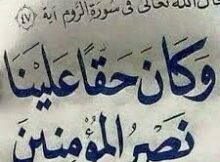 قال الله تعالى في سورة الروم آية (٤٧)
وَكَانَ حَقًّا عَلَيْنَا
نَصْرُ الْمُؤْمِنِينَ